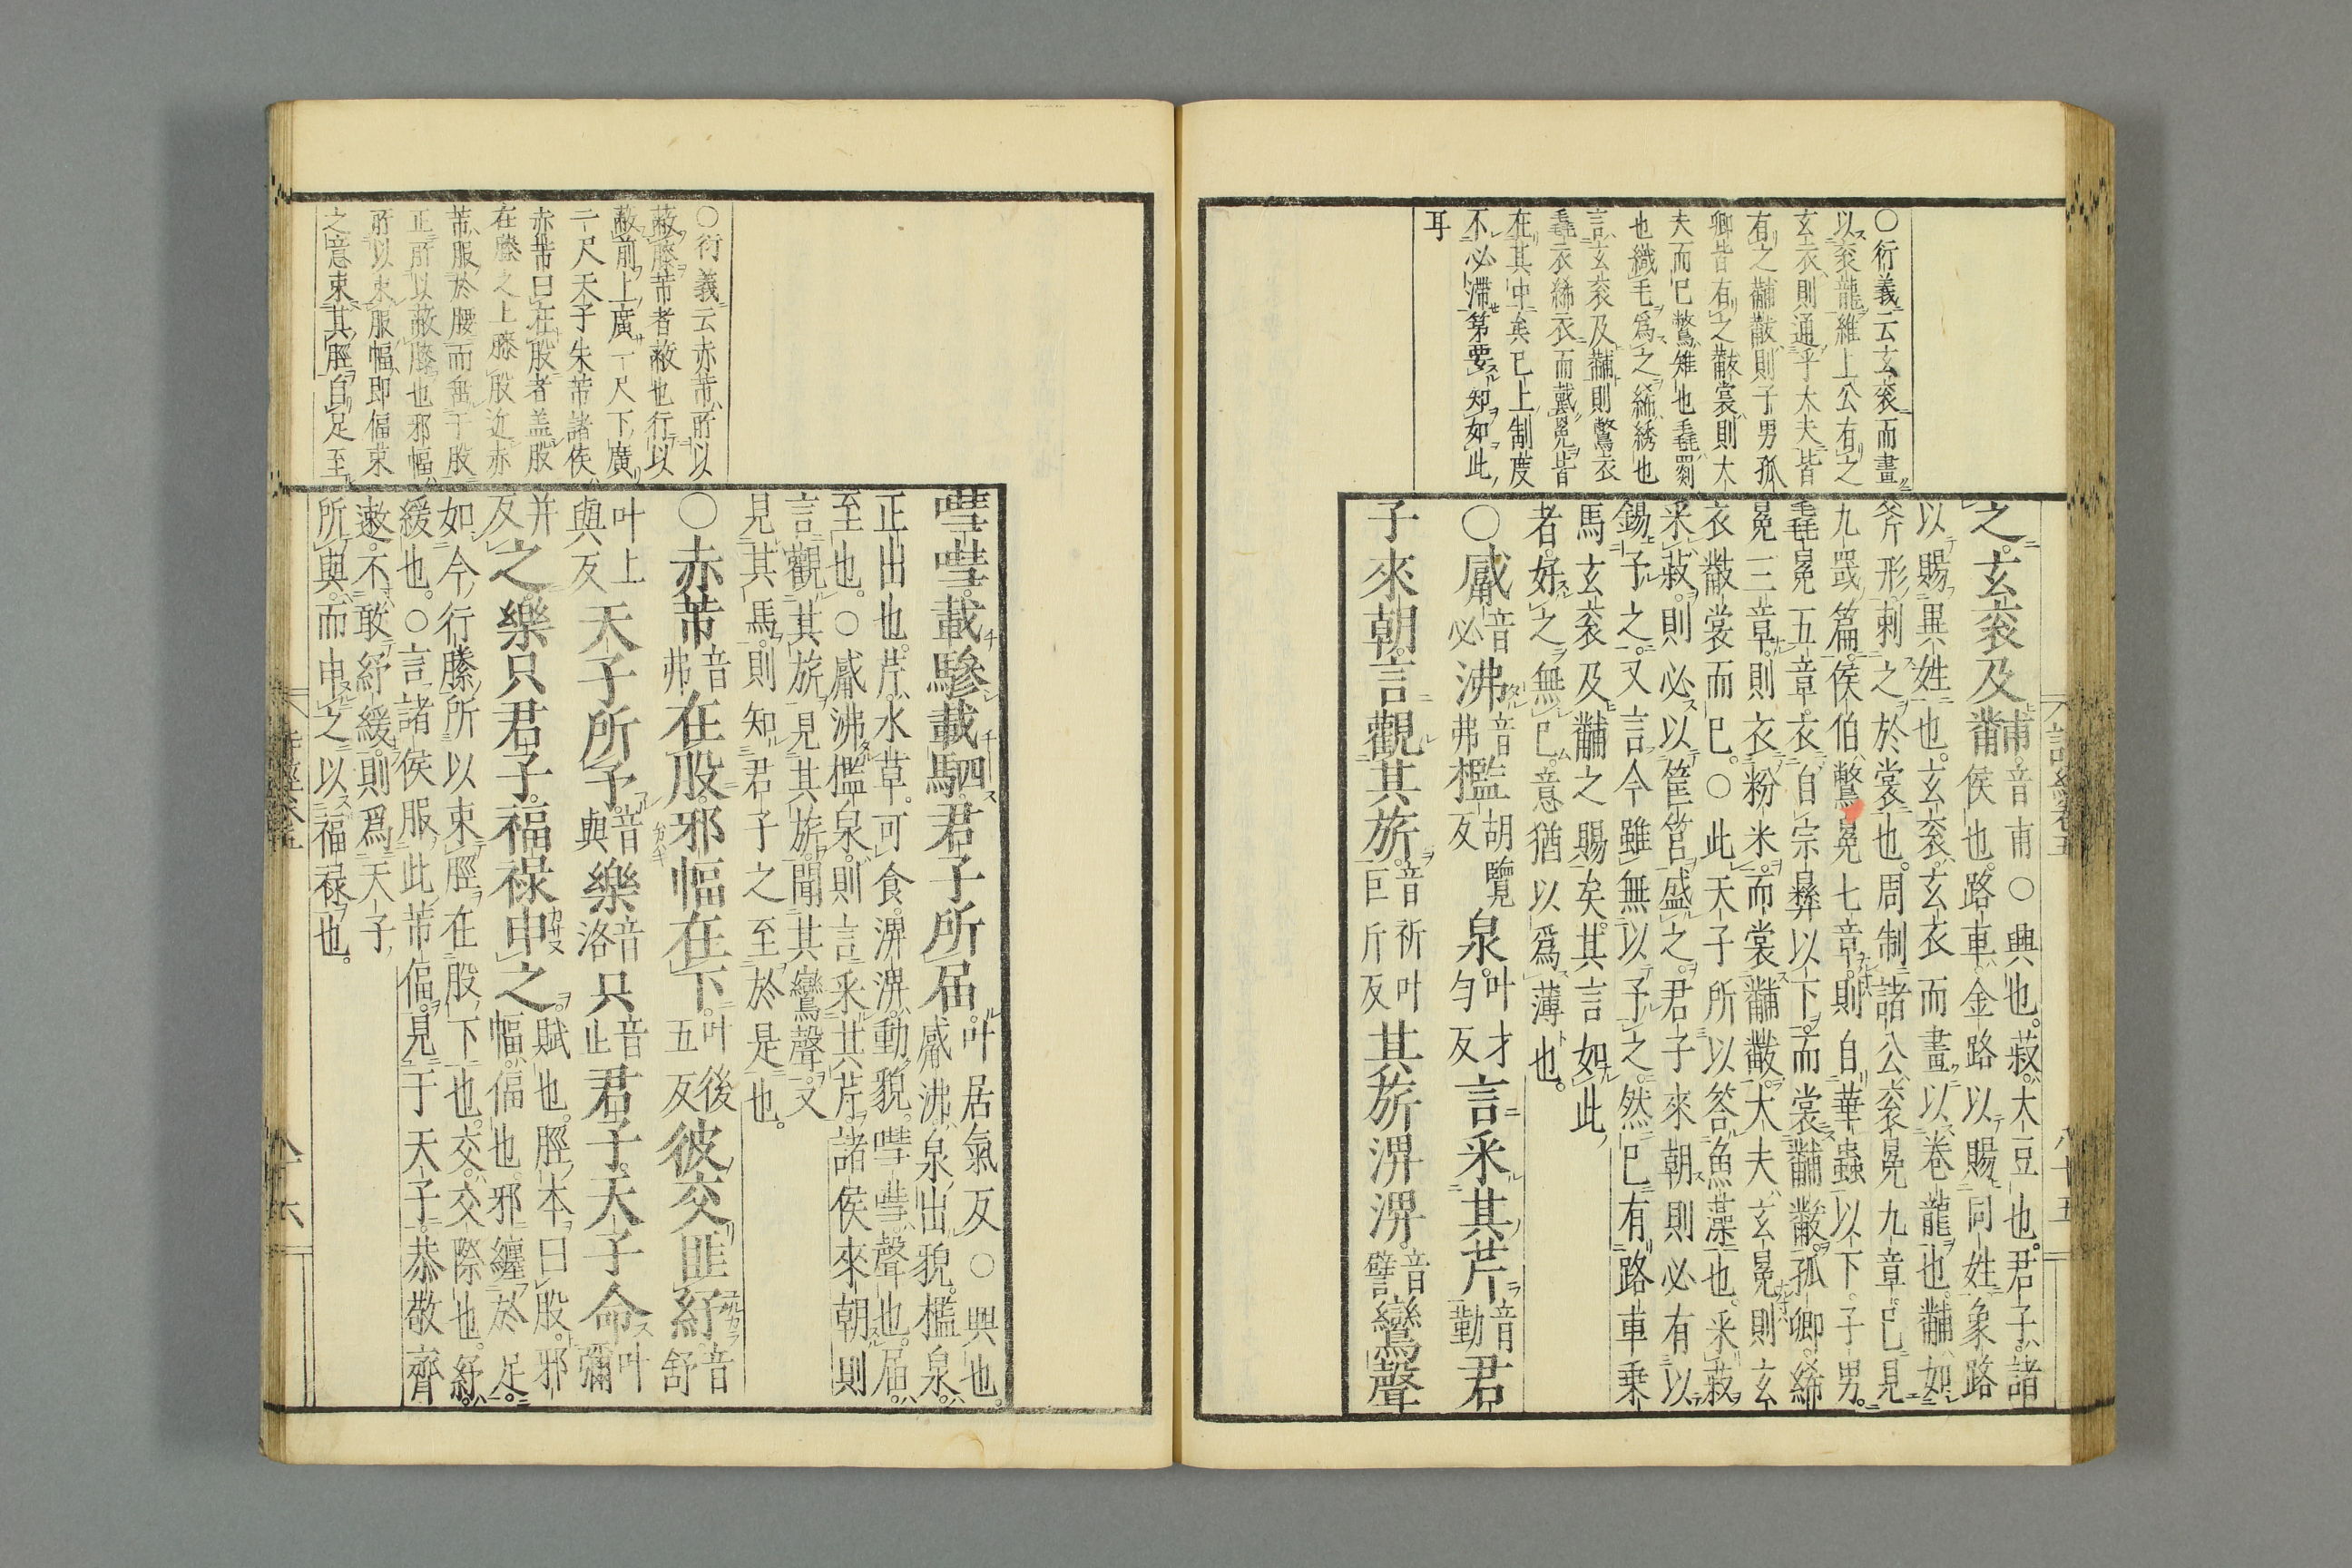 ○衍義云玄衮而畫
以衮龍維上公有之
玄衣則通乎大夫皆
有之黼黻則子男孤
卿皆有之黻裳則大
夫而已鷩雉也毳罽
也織毛爲之絺綉也
言玄衮及黼則鷩衣
毳衣絺衣而戴冕皆
在其中矣已上制度
不必滯第要知如此
耳
之玄衮及黼音甫○興也菽大豆也君子諸
侯也路車金路以賜同姓象路
以賜異姓也玄衮玄衣而畫以卷龍也黼如
斧形刺之於裳也周制諸公衮冕九章已見
九罭篇侯伯鷩冕七章則自華蟲以下子男
毳冕五章衣自宗彝以下而裳黼黻孤卿絺
冕三章則衣粉米而裳黼黻大夫玄冕則玄
衣黻裳而已○此天子所以答魚藻也采菽
采菽則必以筐筥盛之君子來朝則必有以
錫予之又言今雖無以予之然已有路車乗
馬玄衮及黼之賜矣其言如此
者好之無已意猶以爲薄也
○觱音必沸音弗檻胡覽反泉叶才勻反言采其芹音勤君
子來朝言觀其旂音祈叶巨斤反其旂淠淠音譬鸞聲
嘒嘒載驂載駟君子所屆叶居氣反○興也
觱沸泉出貌檻泉
正出也芹水草可食淠淠動貌嘒嘒聲也屆
至也○觱沸檻泉則言采其芹諸侯來朝則
言觀其旂見其旂聞其鸞聲又
見其馬則知君子之至於是也
○赤芾音弗在股邪幅在下叶後五反彼交匪紓音舒
叶上與反天子所予音與樂音洛只音止君子天子命叶彌
并反之樂只君子福禄申之賦也脛本曰股邪
幅偪也邪纏於足
如今行縢所以束脛在股下也交交際也紓
緩也○言諸侯服此芾偪見于天子恭敬齊
遫不敢紓緩則爲天子
所與而申之以福禄也
○衍義云赤芾所以
蔽膝芾者蔽也行以
蔽前上廣一尺下廣
二尺天子朱芾諸侯
赤芾曰在股者盖股
在膝之上膝股近赤
芾服於腰而垂于股
正所以蔽膝也邪幅
所以束服幅即偪束
之意束其脛自足至